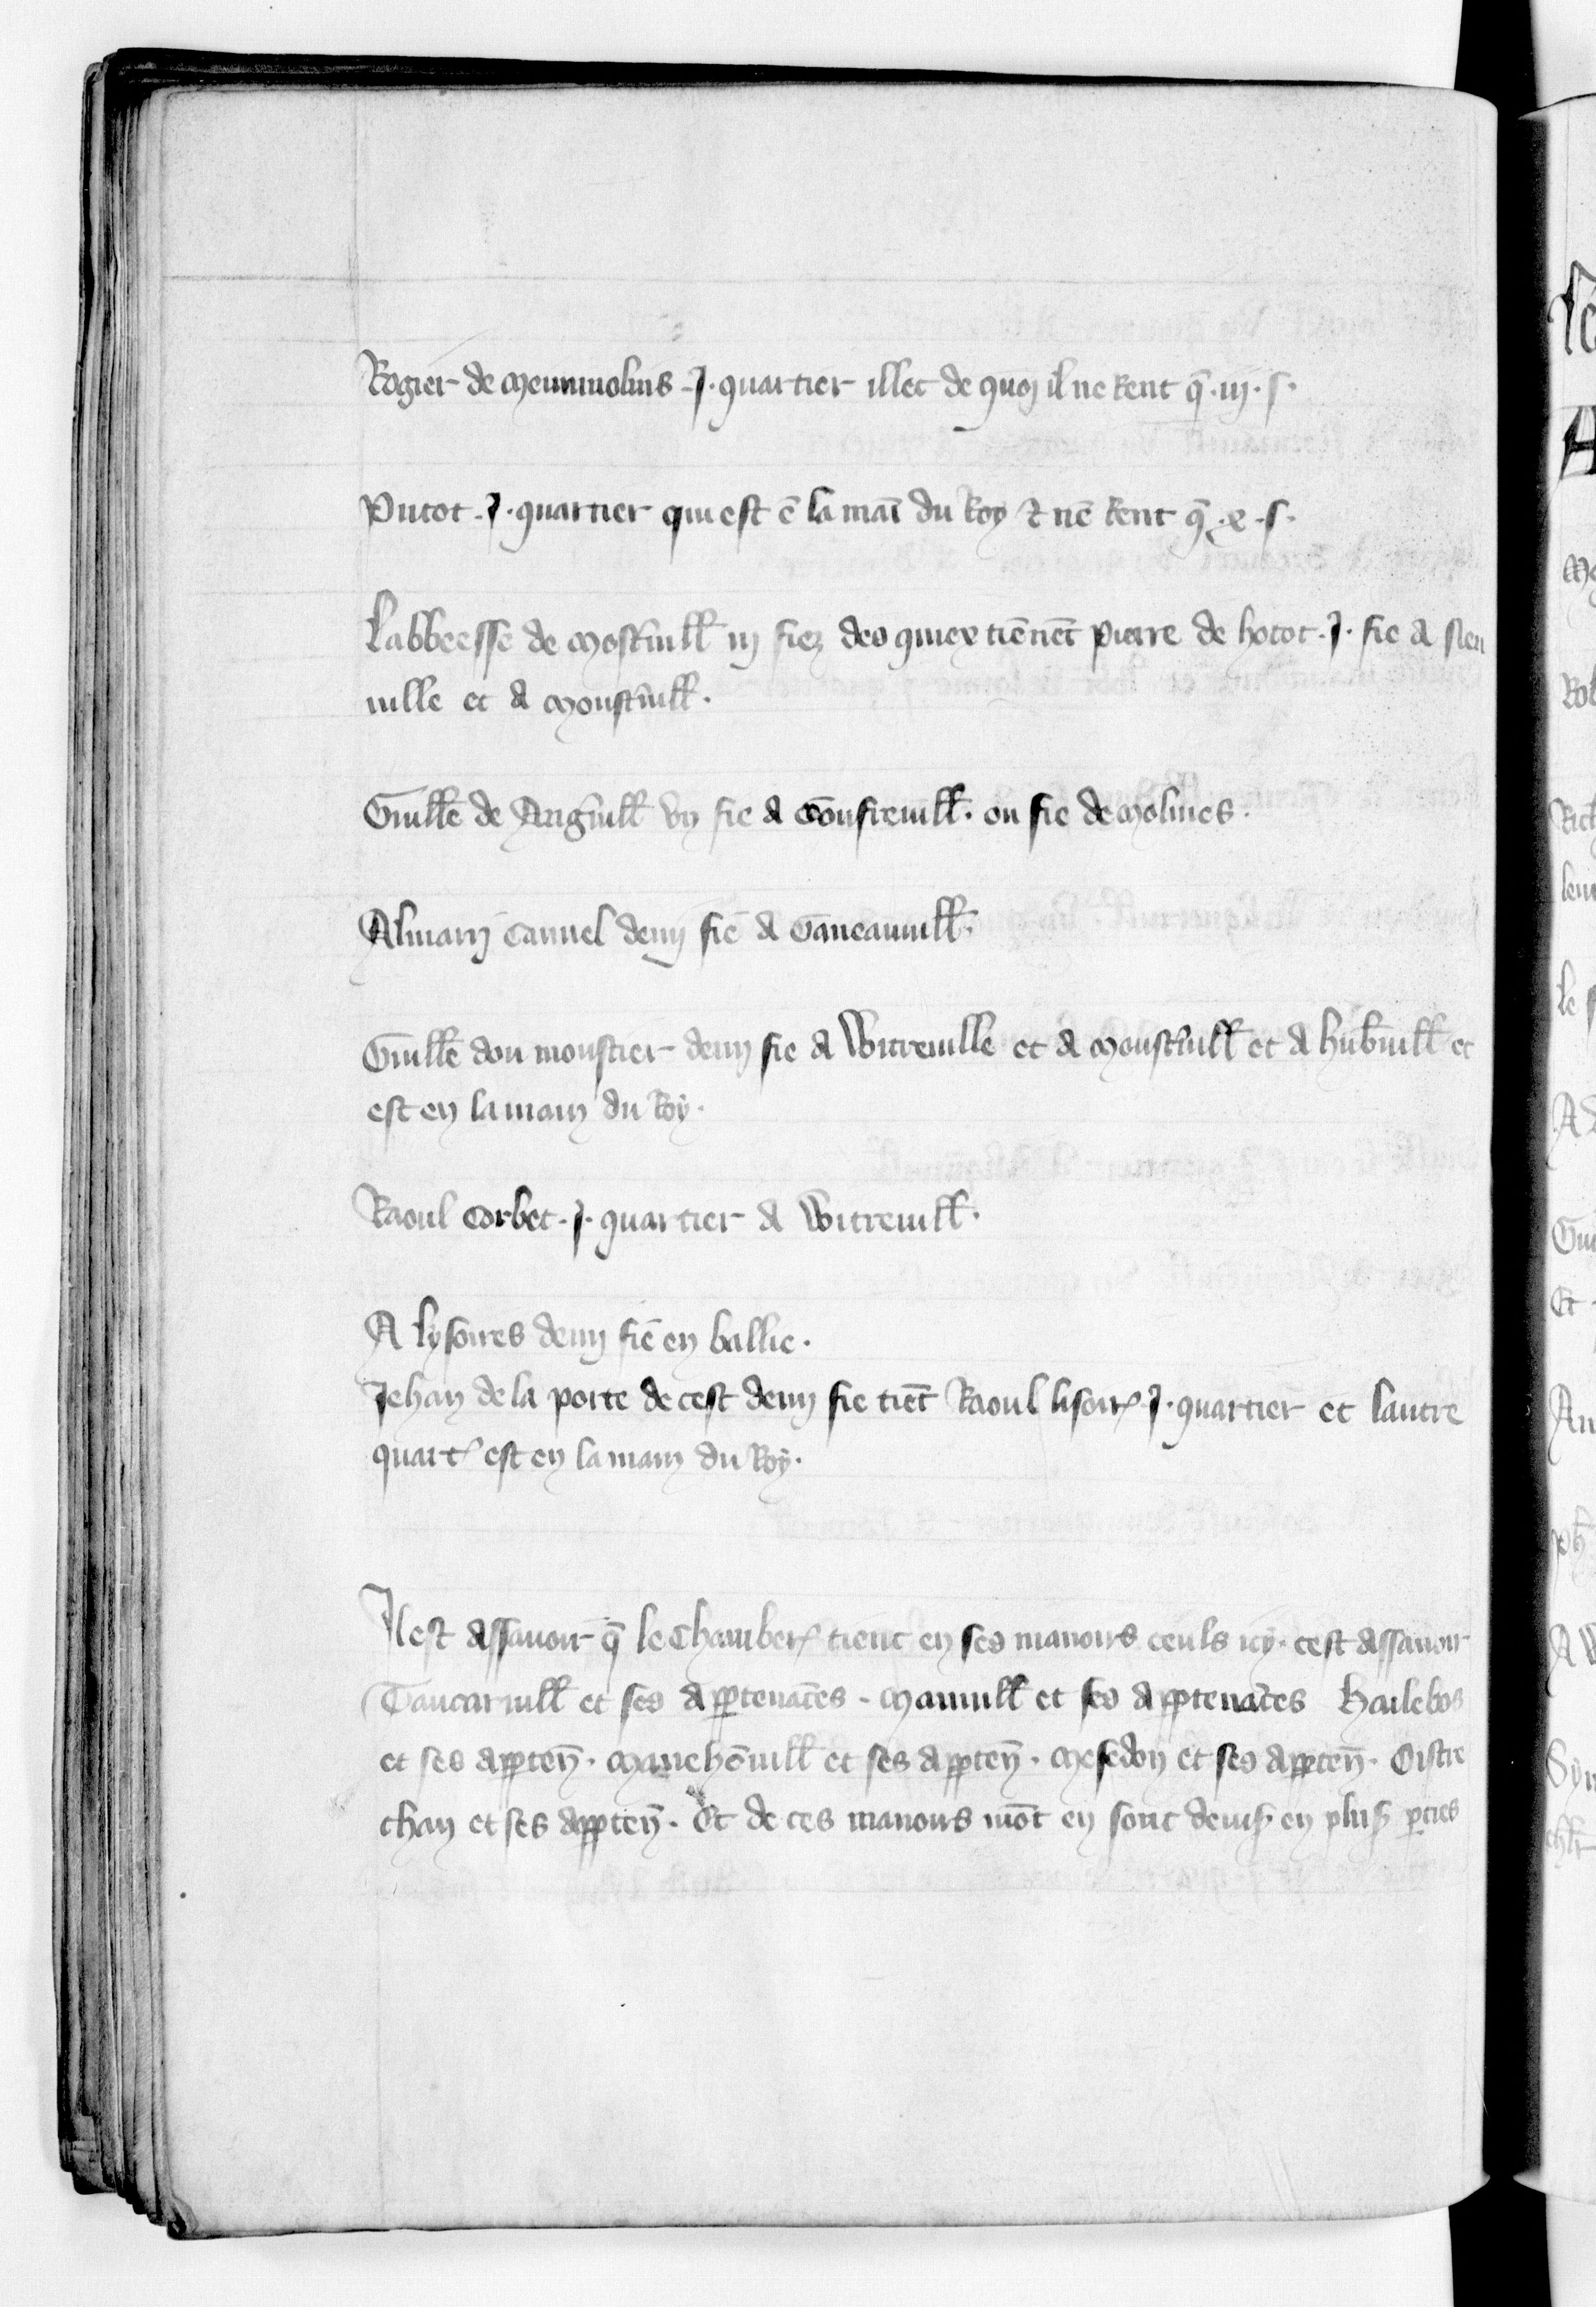 Rogier de Menmolins .J. quartier illec de quoy il ne rent q̄ .iij. s.
Putot .J. quartier qui est ē la maī du Roy ⁊ nē rent q̄ .x. s.
Labbeesse de Mostiuill̄ iij fiez des quiex tiēnēt Pierre de hotot .J. fie a Neu
uille et a Moustiuill̄.
Guill̄e de Angiuill̄ vn fie a Gonfreuill̄. ou fie de Molines.
Almarij Cauuel demj fie a Gāneauuill̄.
Guill̄e dou moustier demj fie a Witreuille et a Moustiuill̄ et a hub̄uill̄ et
est en la main du Roy.
Raoul Corbet .J. quartier a Witreuill̄.
A lysoires demj fie en ballie.
Jehan de la porte de cest demj fie tiēt Raoul lisoir̄ J. quartier et lautre
quart̄ est en la main du Roy.
Il est assauoir q̄ le Chamber̄ tient en ses manoirs ceuls icy. cest assauoir
Tancaruill̄ et ses apptenāces. Manuill̄ et ses apptenāces Hailebos
et ses apptēn. Manehōuill̄ et ses apptēn. Mesedon et ses apptēn. Oistre
than et ses apptēn. Et de ces manoirs mōt en sont deuis̄ en plus̄ pties